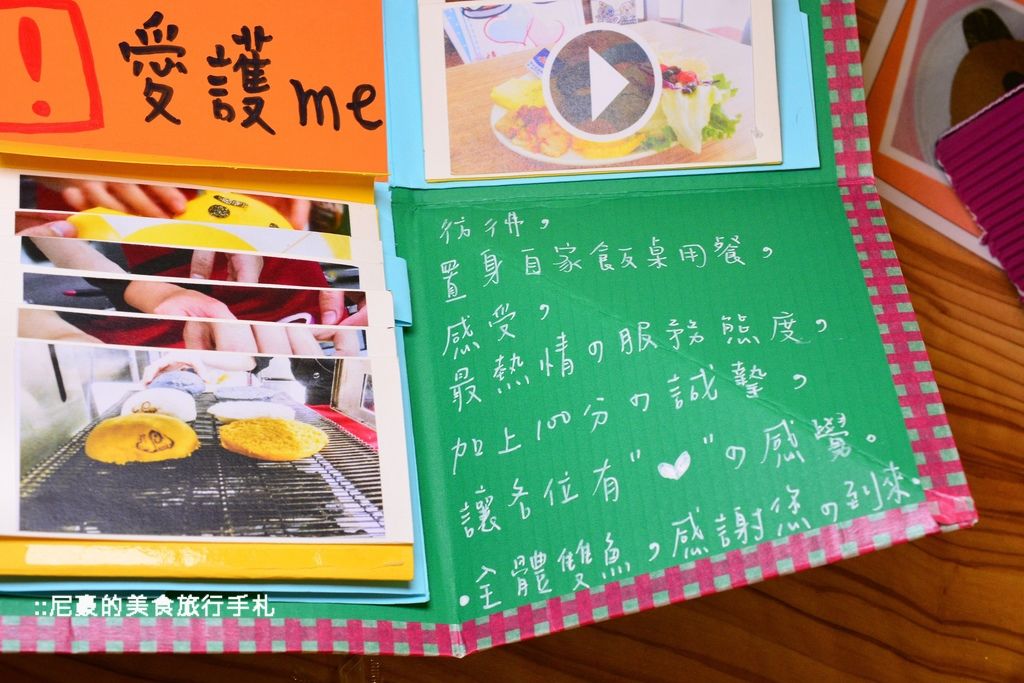 !
愛護me
彷彿，
置身自家飯桌用餐，
感受，
最熱情の服務態度，
加上100分の誠摯，
讓各位有"♥"の感覺。
•全體雙魚，感謝您の到來•
::尼豪的美食旅行手札